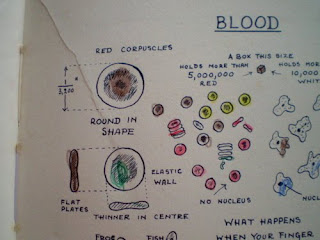 BLOOD
RED CORPUSCLES
A BOX THIS SIZE
HOLDS MORE THAN
5,000,000
RED
HOLDS MOR
10,000
WHIT
1"
3,200
ROUND IN
SHAPE
ELASTIC
WALL
FLAT
PLATES
THINNER IN CENTRE
NO NUCLEUS
NUCL
WHAT HAPPENS
WHEN YOUR FINGER
FROG
FISH